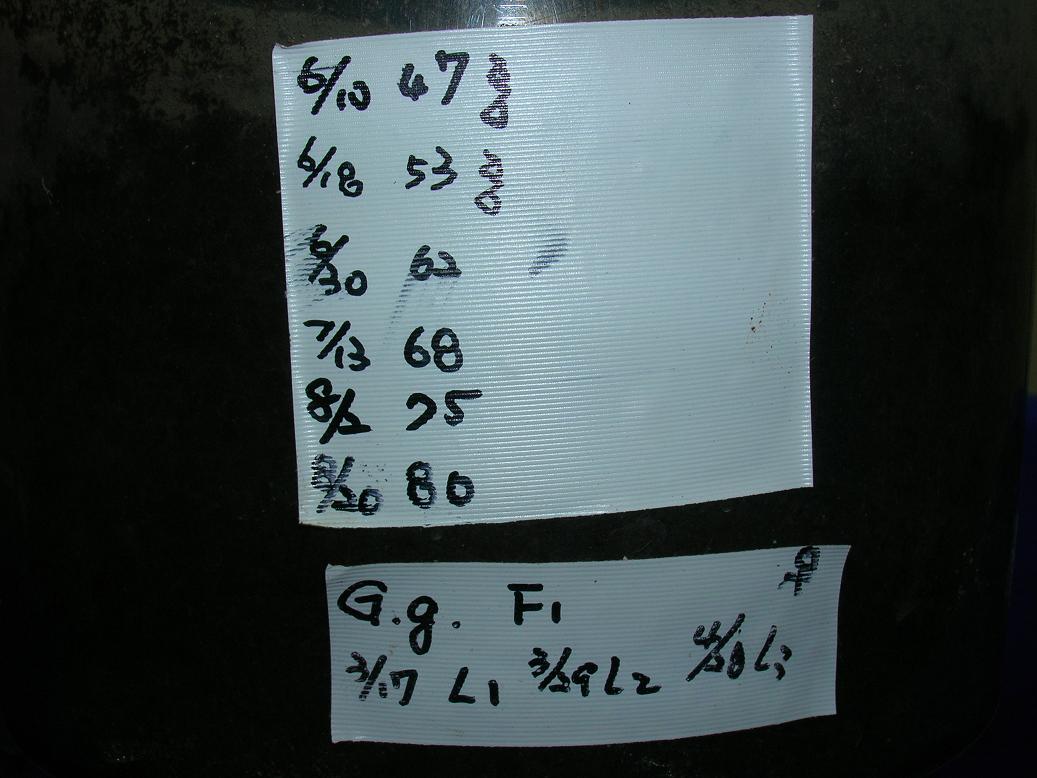 6/10 47g
6/18 53g
6/30 62
7/13 68
8/2 75
8/20 80
♀
G.g. F1
3/17 L1 3/29 L2 4/28 L3